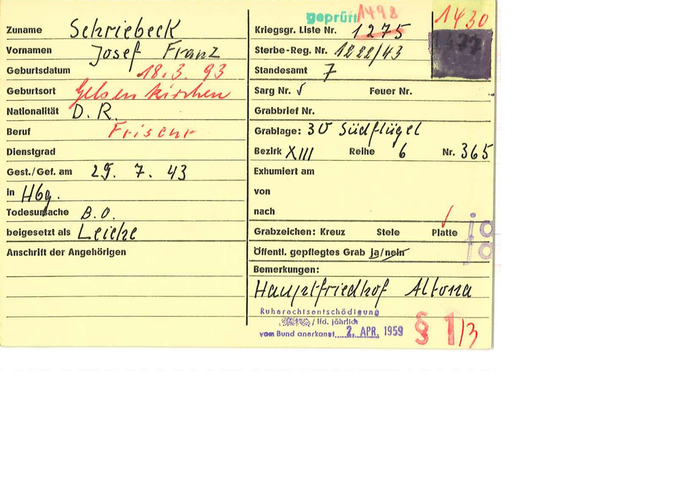 geprüft 1498
1430
Zuname Schriebeck
Vornamen Josef Franz
Geburtsdatum 18.3.93
Geburtsort Gelsenkirchen
Nationalität D.R.
Beruf Friseur
Dienstgrad
Gest./Gef. am 29.7.43
in Hbg.
Todesursache B.O.
beigesetzt als Leiche
Anschrift der Angehörigen
Kriegsgr. Liste Nr. 1275
Sterbe-Reg. Nr. 1222/43
Standesamt 7
Sarg Nr. Feuer Nr.
Grabbrief Nr.
Grablage: 30 Südflügel
Bezirk XIII Reihe 6 Nr. 365
Exhumiert am
von
nach
Grabzeichen: Kreuz Stele Platte ja
Öffentl. gepflegtes Grab ja/nein ja
Bemerkungen:
Hauptfriedhof Altona
Ruherechtsentschädigung
/ lfd. jährlich
vom Bund anerkannt 2. APR. 1959
§ 1/3